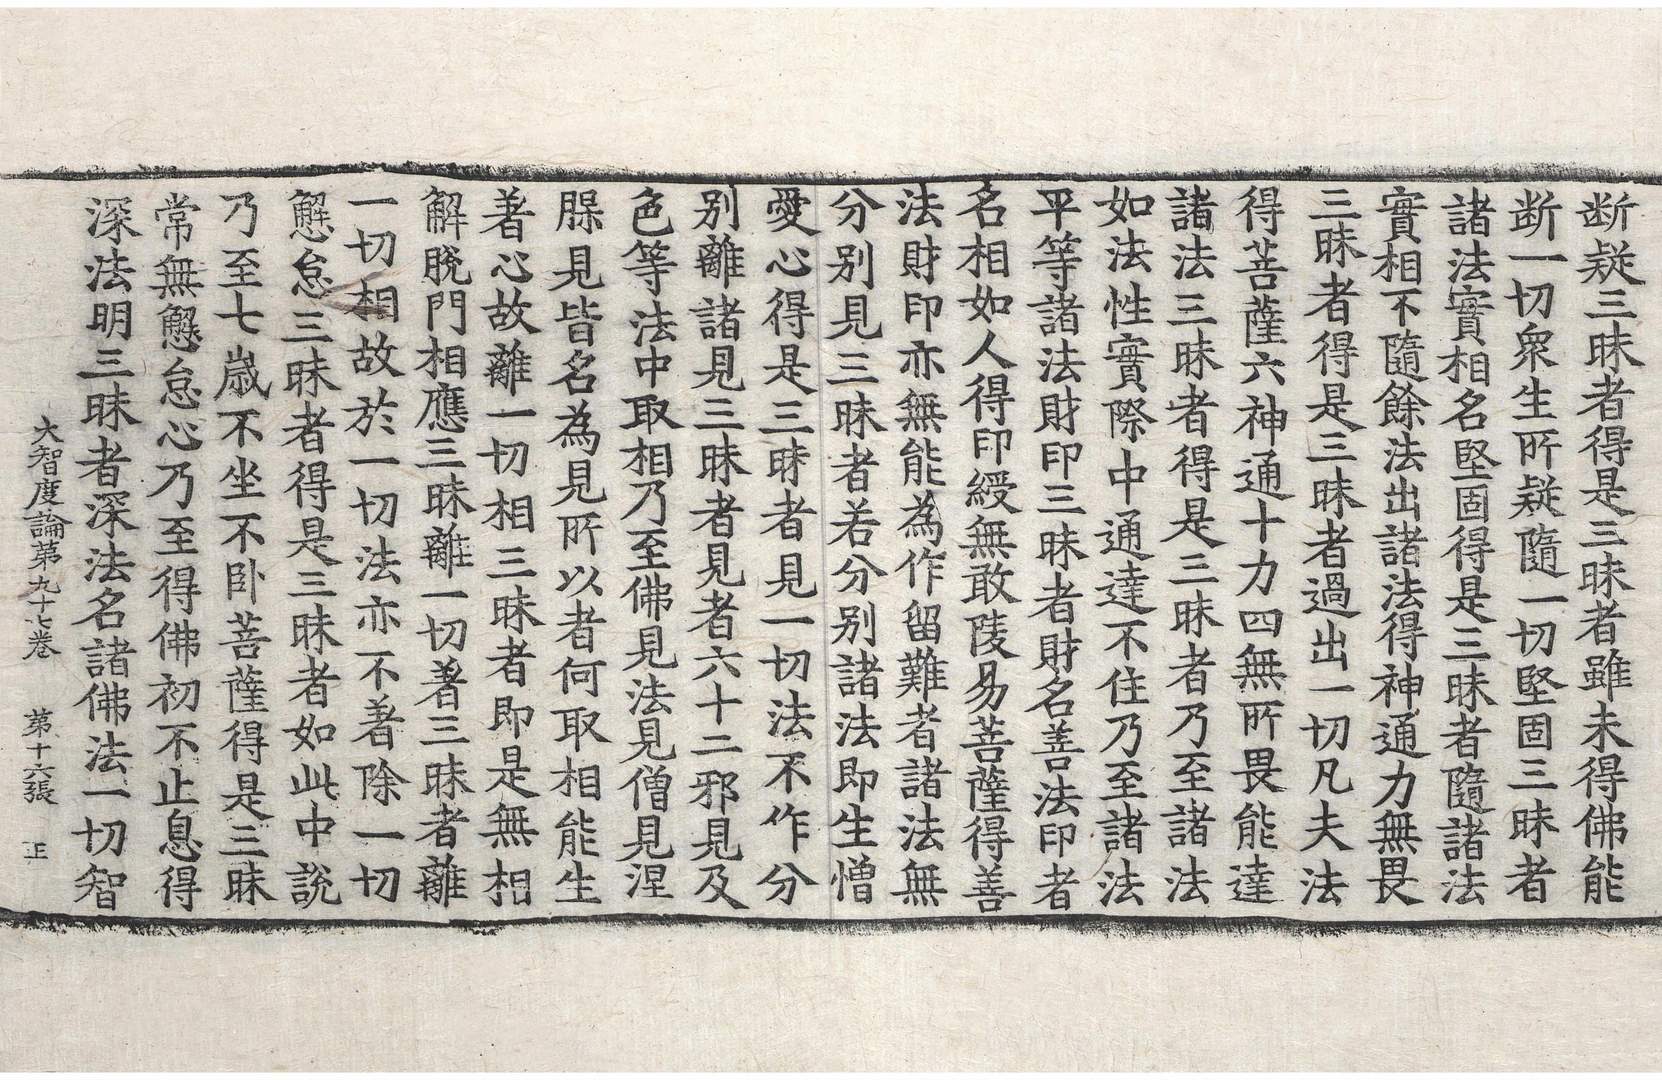 断疑三昧者得是三昧者雖未得佛能
断一切衆生所疑隨一切堅固三昧者
諸法實相名堅固得是三昧者隨諸法
實相不隨餘法出諸法得神通力無畏
三昧者得是三昧者過出一切凡夫法
得菩薩六神通十力四無所畏能達
諸法三昧者得是三昧者乃至諸法
如法性實際中通達不住乃至諸法
平等諸法財印三昧者財名善法印者
名相如人得印綬無敢陵易菩薩得善
法財印亦無能為作留難者諸法無
分別見三昧者若分別諸法即生憎
愛心得是三昧者見一切法不作分
別離諸見三昧者見者六十二邪見及
色等法中取相乃至佛見法見僧見涅
𦙶見皆名為見所以者何取相能生
著心故離一切相三昧者即是無相
解脫門相應三昧離一切著三昧者離
一切相故於一切法亦不著除一切
懈怠三昧者得是三昧者如此中說
乃至七歲不坐不卧菩薩得是三昧
常無懈怠心乃至得佛初不止息得
深法明三昧者深法名諸佛法一切智
大智度論第九十七卷　第十六張　正